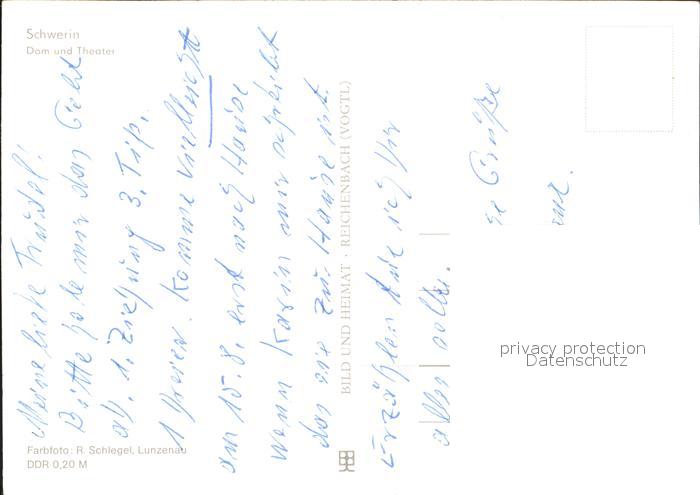 Schwerin
Dom und Theater
Meine liebe Trudel!
Bitte hole mir das Geld
ab. 1. Ziehung 3. Tip.
1 Dreier. Komme vielleicht
am 15.8. erst nach Hause
wenn Karin mir schreibt
das sie zu Hause ist.
Erzählen tue ich Dir
alles
Grüße
BILD UND HEIMAT · REICHENBACH (VOGTL)
Farbfoto: R. Schlegel, Lunzenau
DDR 0,20 M
privacy protection
Datenschutz